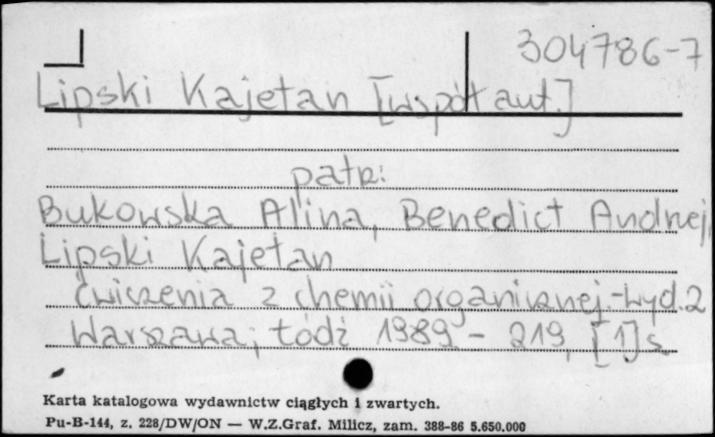 304786-7
Lipski Kajetan [współaut.]
patrz:
Bukowska Alina, Benedict Andrzej,
Lipski Kajetan
Ćwiczenia z chemii organicznej.-Wyd.2
Warszawa; Łódź 1989.- 219, [1] s.
Karta katalogowa wydawnictw ciągłych i zwartych.
Pu-B-144, z. 228/DW/ON — W.Z.Graf. Milicz, zam. 388-86 5.650.000